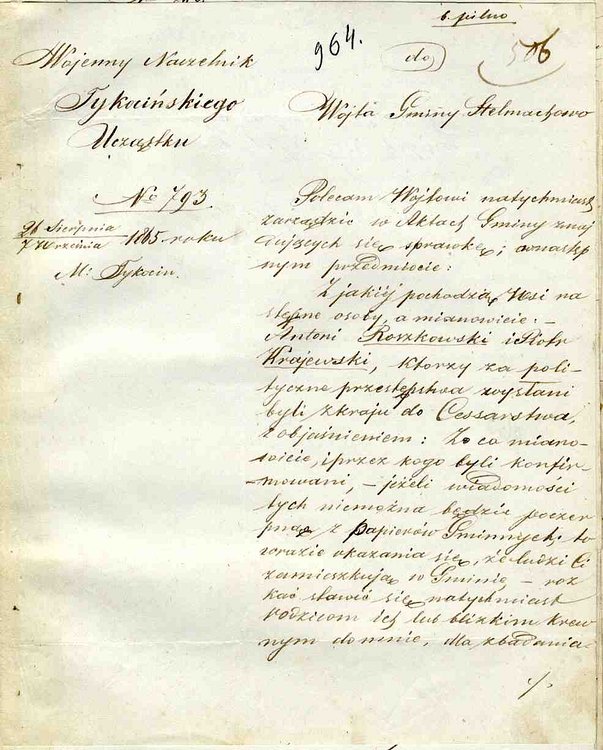 b. pilno
964.
do
506
Wojenny Naczelnik
Tykocińskiego
Uczastku
Wójta Gminy Stelmachowo
No 793
26 Sierpnia
7 Września 1865 roku
M: Tykocin.
Polecam Wójtowi natychmiast
zarządzić w Aktach Gminy znaj
dujących się sprawkę, o następ
nym przedmiocie:
Z jakiéj pochodzą Wsi na
stępne osoby, a mianowicie: –
Antoni Roszkowski i Piotr
Krajewski, ktorzy za poli-
tyczne przestępstwa wysłani
byli z kraju do Cessarstwa,
z objaśnieniem: Za co miano-
wicie, i przez kogo byli konfir-
mowani, – jeżeli wiadomości
tych niemożna będzie poczer
pnąć z papierów Gminnych, to
w razie okazania się, że ludzi Ci
zamieszkują w Gminie – roz
kać stawić się natychmiast
rodzicom ich lub blizkim krew
nym do mnie, dla zbadania
·/.